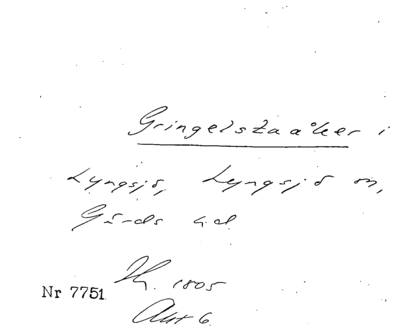 Gringelstaåker i
Lyngsjö, Lyngsjö sn,
Gärds hd
1805
Nr 7751
Akt 6.